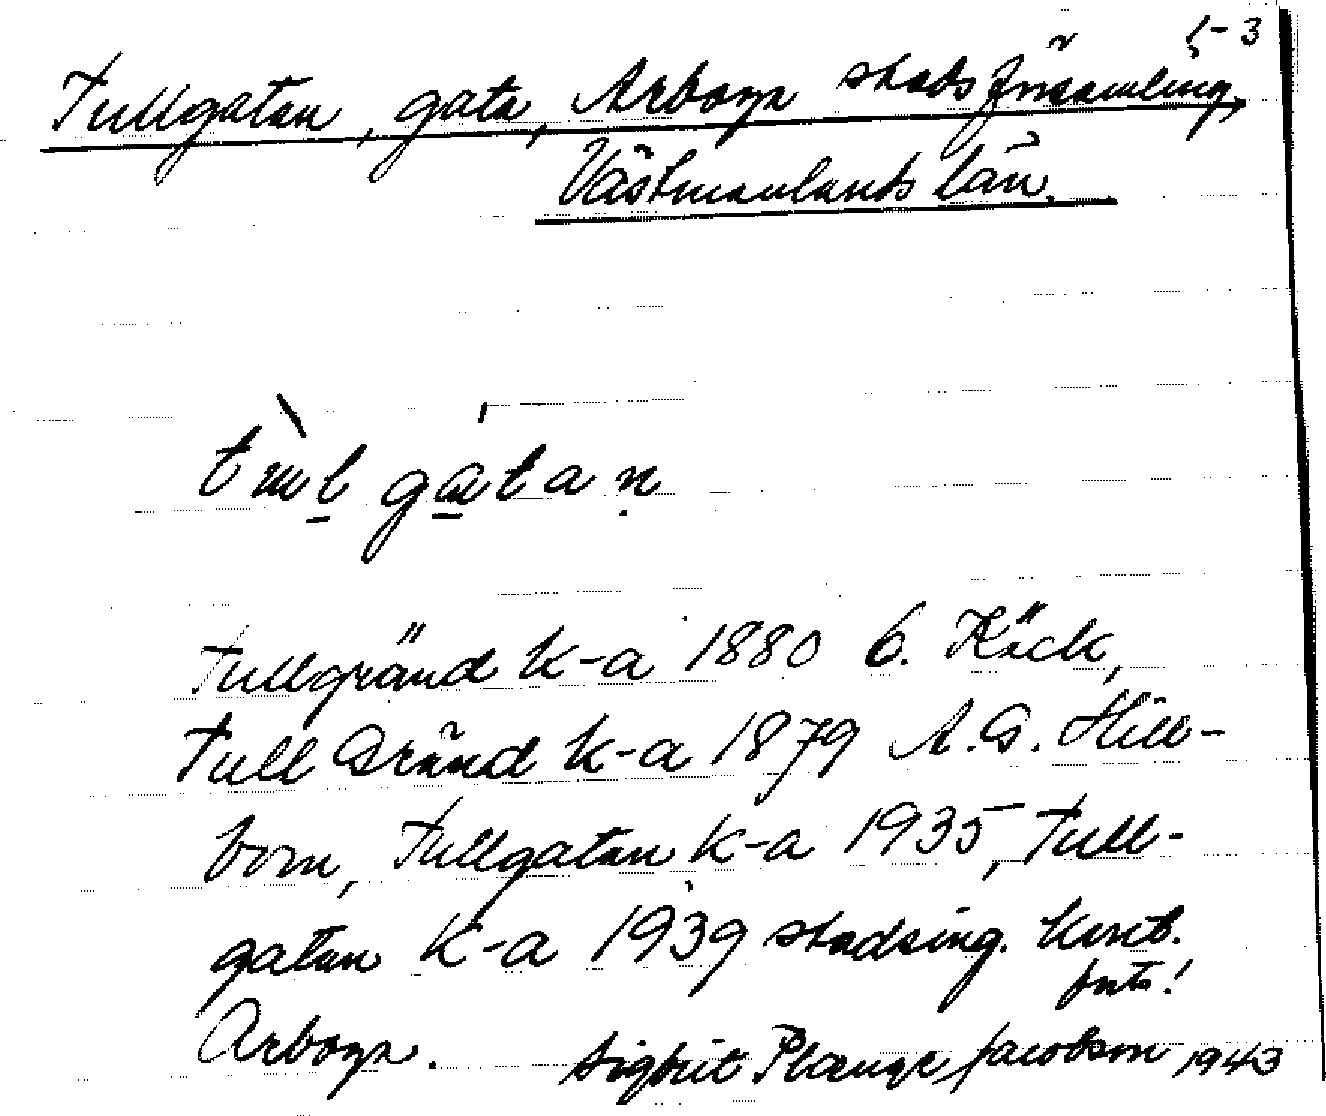 5-3
Tullgatan, gata, Arboga stadsförsamling,
Västmanlands län.
tɯl gatan
Tullgränd k-a 1880 G. Käck,
Tull Gränd k-a 1879 A.G. Hill-
bom, Tullgatan k-a 1935, Tull-
gatan k-a 1939 stadsing. kont.
forts!
Arboga. Sigbrit Plænge Jacobson 1943